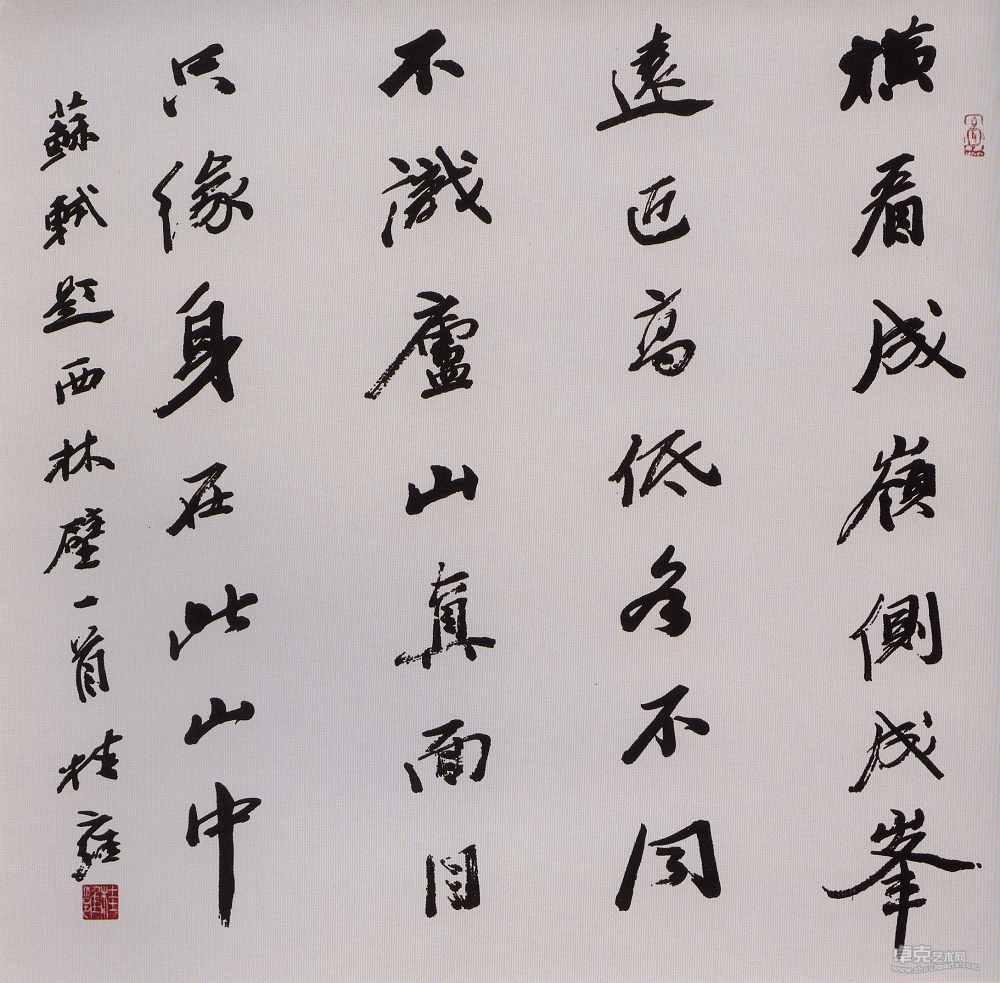 橫看成嶺側成峯
遠近高低各不同
不識廬山真面目
只緣身在此山中
蘇軾題西林壁一首 桂雍
卓克艺术网